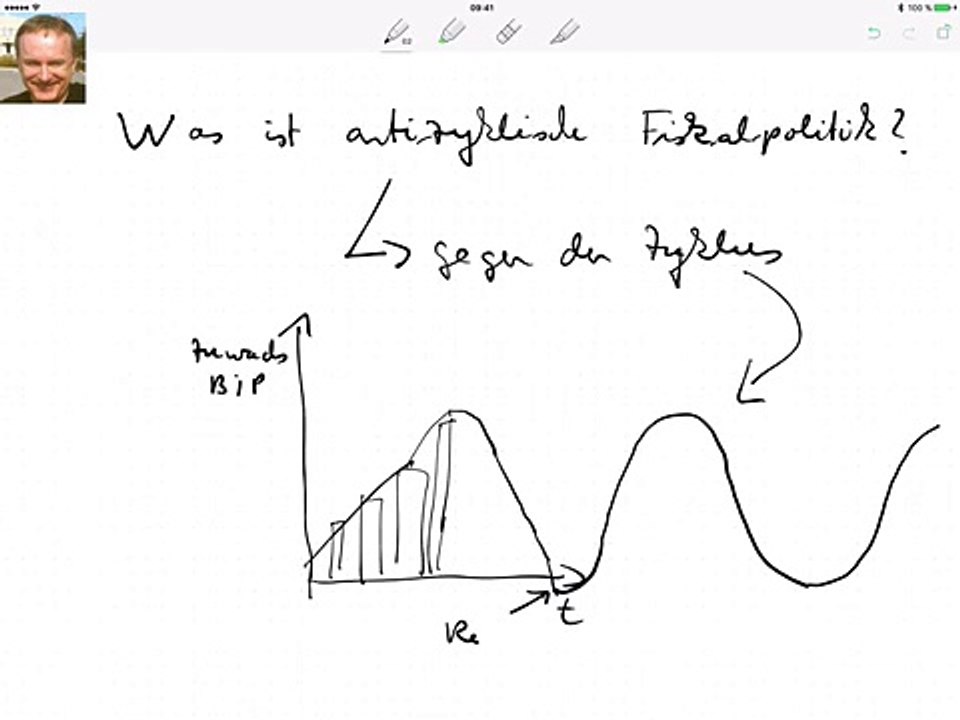 09:41
100 %
02
Was ist antizyklische Fiskalpolitik?
gegen den Zyklus
Zuwachs
BiP
t
Re